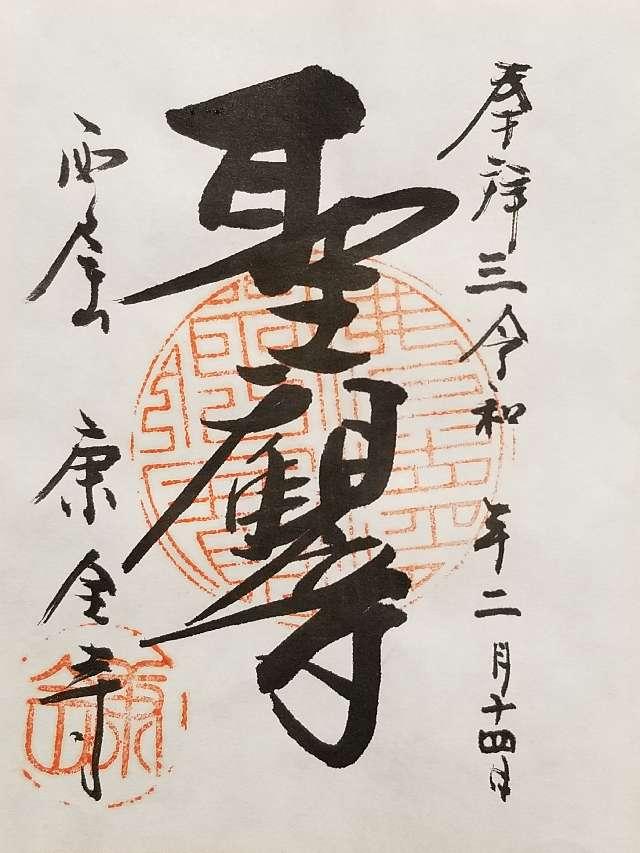 奉拝三令和 年二月十四日
聖観音
西 山 康全寺